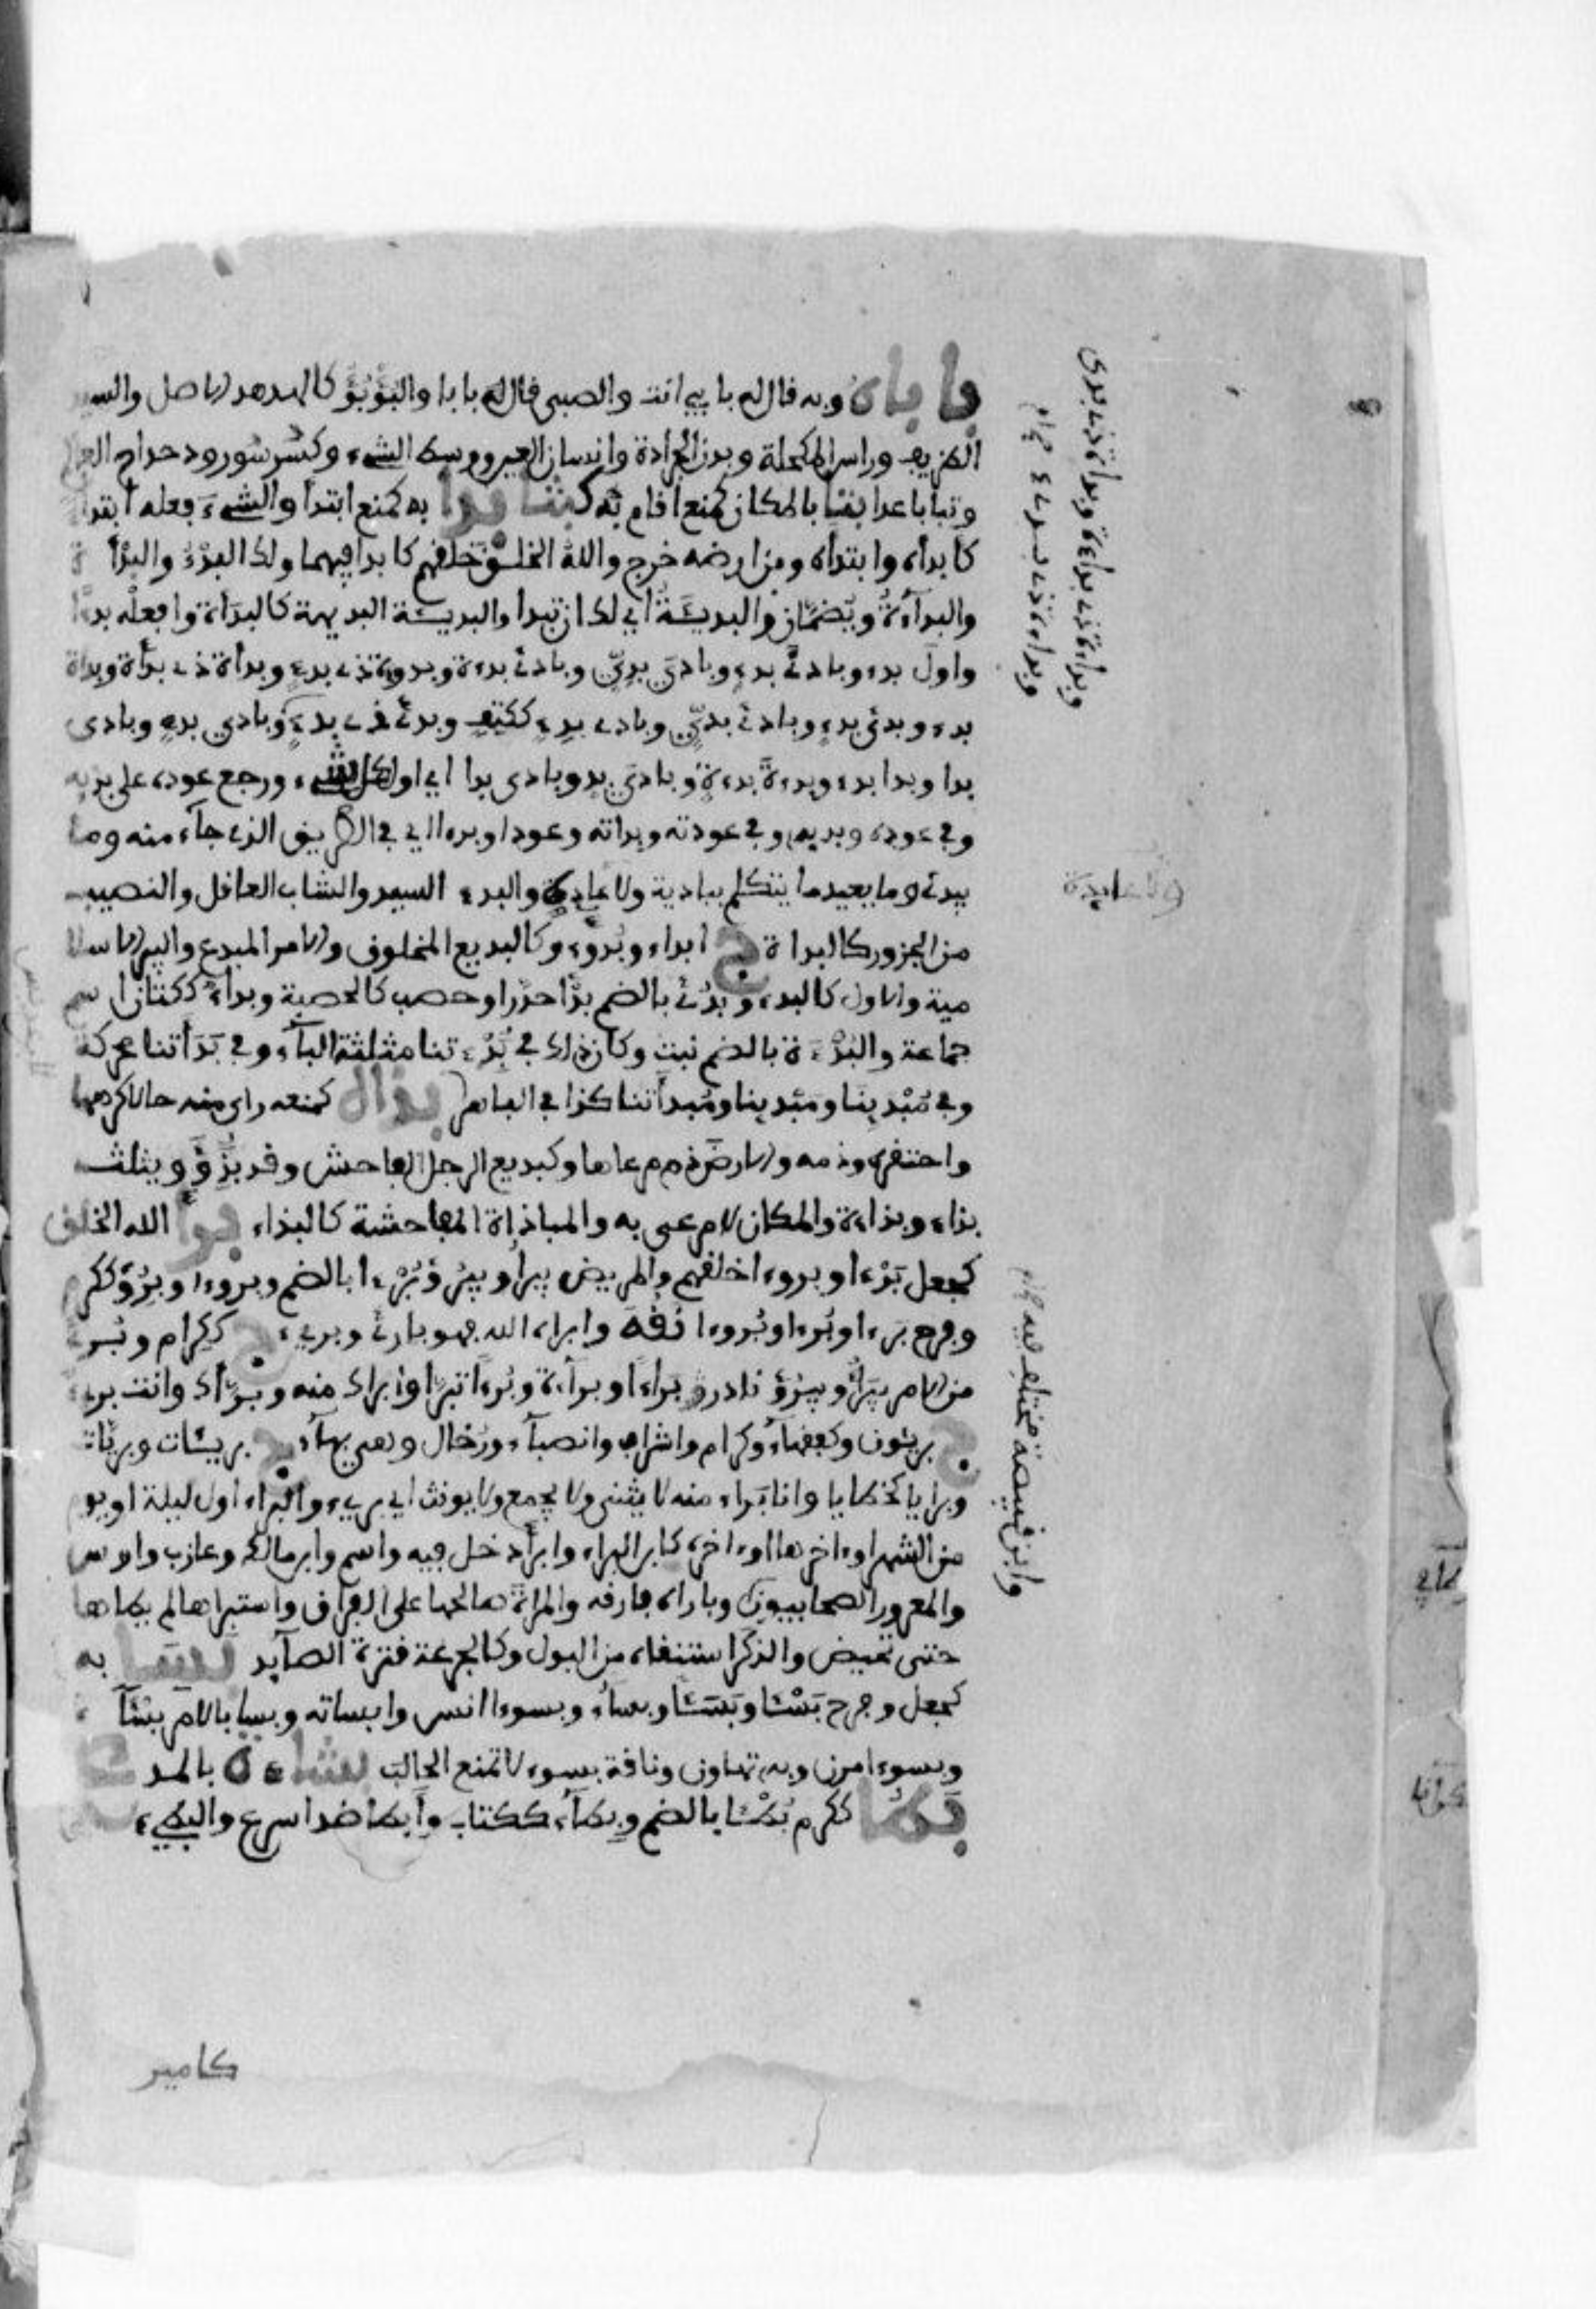 بابأه وبه قال له بابي انت والصبي قال له بابا والبؤبؤ كالهدهد الاصل والسيد
الظريف وراس المكحلة وبدن الجرادة وانسان العين ووسط الشيء وكسرسور ودحداح العالم
وتبابا عدا بتا بالمكان كمنع اقام به كبثا بدا به كمنع ابتدا والشيء فعله ابتدا
كابداه وابتداه ومن ارضه خرج والله الخلق خلقهم كابدا فيهما ولك البدء والبدأة
والبدآءة ويضمان والبديئة اي لك ان تبدا والبديئة البديهة كالبداءة وافعله بدءا
واول بدء وبادئ بدء وبادي بدي وبادئ بدءة وبدءة ذي بدء وبدأة ذي بدأة وبداة
بدء وبدئ بدء وبادئ بدئ وبادئ بدء ككتف وبدئ ذي بدء وبادي بدء وبادى
بدا وبدا بدء وبدءة بدءة وبادي بد وبادى بدا اي اول كل شيء ورجع عوده على بديه
وفي عوده وبديه وفي عودته وبداته وعودا وبدءا اي في الطريق الذي جآء منه وما
يبدئ وما يعيد ما يتكلم ببادية ولا عادية والبدء السيد والشاب العاقل والنصيب
من الجزور كالبداة ج ابداء وبدوء وكالبديع المخلوق والامر المبدع والبير الاسلا
مية والاول كالبدء وبدئ بالضم بدأ جدر او حصب كالحصبة وبداء ككتان اسم
جماعة والبدءة بالضم نبت وكان ذلك في بدءتنا مثلثة البآء وفي بدأتنا محركة
وفي مبدينا ومبدينا ومبدأتنا كذا في الباهر بذاه كمنعه راى منه حالا كرهها
واحتقره وذمه والارض ذم مرعاها وكبديع الرجل الفاحش وقد بذؤ ويثلث
بذاء وبذاءة والمكان لا مرعى به والمباذاة المفاحشة كالبذاء برأ الله الخلق
كجعل برءا وبروءا خلقهم والمريض يبرأ ويبرؤ برءا بالضم وبروءا وبرؤ ككرم
وفرح برءا وبرءا وبروءا نقه وابراه الله فهو بارئ وبريء ج ككرام وبرئ
من الامر يبرأ ويبرؤ نادر براءا وبراءة وبرءا تبرا وابراك منه وبرأك وانت بريء
ج بريئون وكفقهاء وكرام واشراف وانصبآء ورخال وهي بهآء ج بريئات وبريات
وبرايا كخطايا وانا براء منه لا يثنى ولا يجمع ولا يونث اي بريء والبراء اول ليلة او يوم
من الشهر او اخرها او اخره كابن البراء وابرأ دخل فيه واسم وابن مالك وعازب واوس
والمعرور الصحابيون وباراه فارقه والمراة صالحها على الفراق واستبراها لم يطاها
حتى تحيض والذكر استنقاه من البول وكالجرعة قترة الصآيد بسأ به
كجعل وفرح بسئا وبسئا وبساء وبسوءا انس وابساته وبسا بالامر بسئآ
وبسوءا مرن وبه تهاون وناقة بسوء لا تمنع الحالب بشاءة بالمد ع
بطؤ ككرم بطئا بالضم وبطآء ككتاب وابطا ضد اسرع والبطيء
كامير
وبداءة ذي بداءة وبدأة ذي بدى
وبداءة ذي بدء
ولا عايدة
وابن قبيصة مختلف فيه